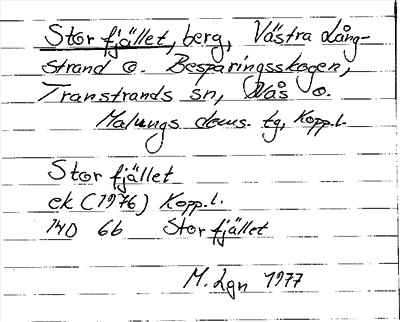 Storfjället, berg, Västra Lång-
strand o. Besparingsskogen,
Transtrands sn, Nås o.
Malungs doms. tg, Kopp.l.
Storfjället
ek (1976) Kopp.l.
14D 6b Storfjället
M. Lgn 1977